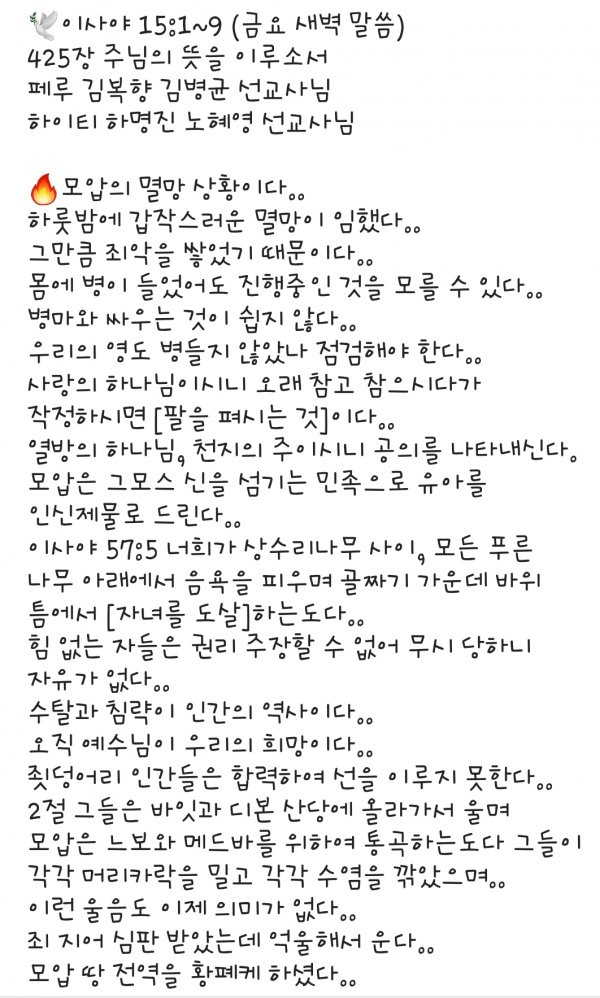 🕊이사야 15:1~9 (금요 새벽 말씀)
425장 주님의 뜻을 이루소서
페루 김복향 김병균 선교사님
하이티 하명진 노혜영 선교사님
🔥모압의 멸망 상황이다..
하룻밤에 갑작스러운 멸망이 임했다..
그만큼 죄악을 쌓었기 때문이다..
몸에 병이 들었어도 진행중인 것을 모를 수 있다..
병마와 싸우는 것이 쉽지 않다..
우리의 영도 병들지 않았나 점검해야 한다..
사랑의 하나님이시니 오래 참고 참으시다가
작정하시면 [팔을 펴시는 것]이다..
열방의 하나님, 천지의 주이시니 공의를 나타내신다.
모압은 그모스 신을 섬기는 민족으로 유아를
인신제물로 드린다..
이사야 57:5 너희가 상수리나무 사이, 모든 푸른
나무 아래에서 음욕을 피우며 골짜기 가운데 바위
틈에서 [자녀를 도살]하는도다..
힘 없는 자들은 권리 주장할 수 없어 무시 당하니
자유가 없다..
수탈과 침략이 인간의 역사이다..
오직 예수님이 우리의 희망이다..
죗덩어리 인간들은 합력하여 선을 이루지 못한다..
2절 그들은 바잇과 디본 산당에 올라가서 울며
모압은 느보와 메드바를 위하여 통곡하는도다 그들이
각각 머리카락을 밀고 각각 수염을 깎았으며..
이런 울음도 이제 의미가 없다..
죄 지어 심판 받았는데 억울해서 운다..
모압 땅 전역을 황폐케 하셨다..